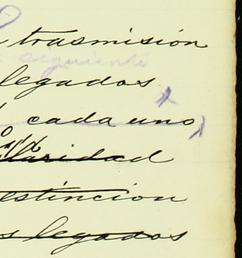 trasmisión
siguiente
legados
cada uno
claridad
estincion
s legados